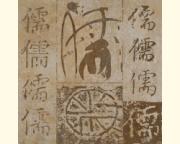 儒儒儒儒
儒儒儒
儒